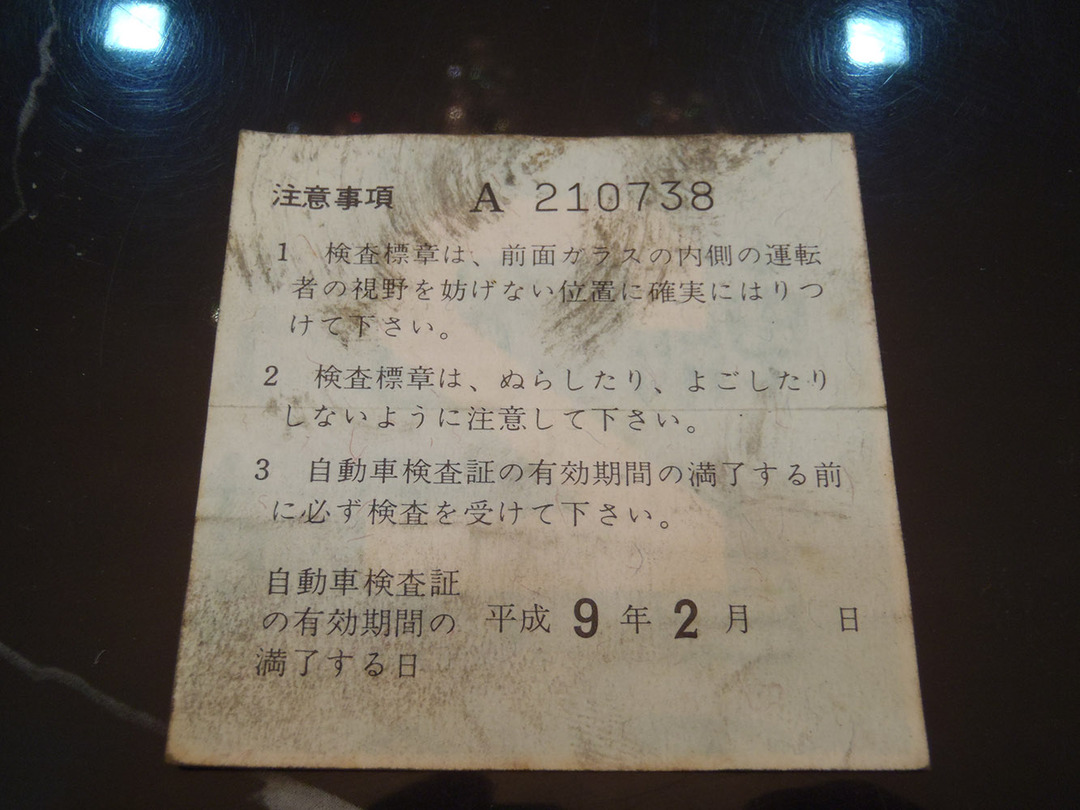 注意事項 A 210738
1 検査標章は、前面ガラスの内側の運転
者の視野を妨げない位置に確実にはりつ
けて下さい。
2 検査標章は、ぬらしたり、よごしたり
しないように注意して下さい。
3 自動車検査証の有効期間の満了する前
に必ず検査を受けて下さい。
自動車検査証
の有効期間の 平成 9 年 2 月 日
満了する日